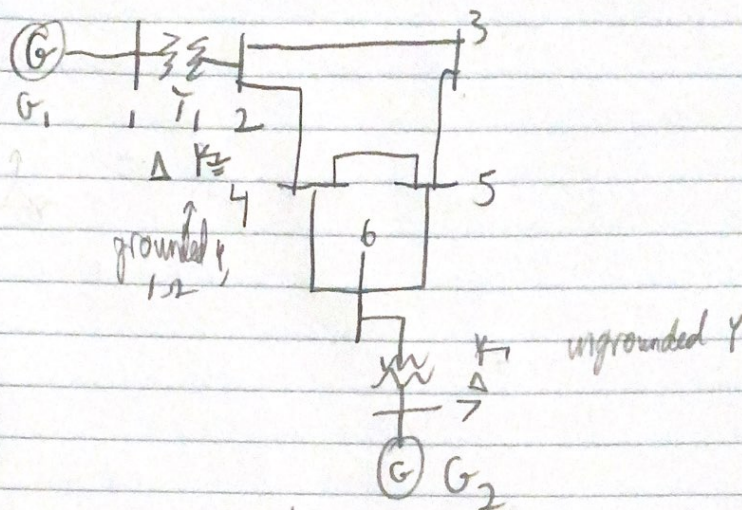 G 3
G₁ 1 T₁ 2
Δ Y
4 5
grounded Y,
1Ω
6
Y ungrounded Y
Δ
7
G G₂